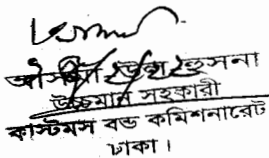 হুসনা
উচ্চমান সহকারী
কাস্টমস বন্ড কমিশনারেট
ঢাকা।